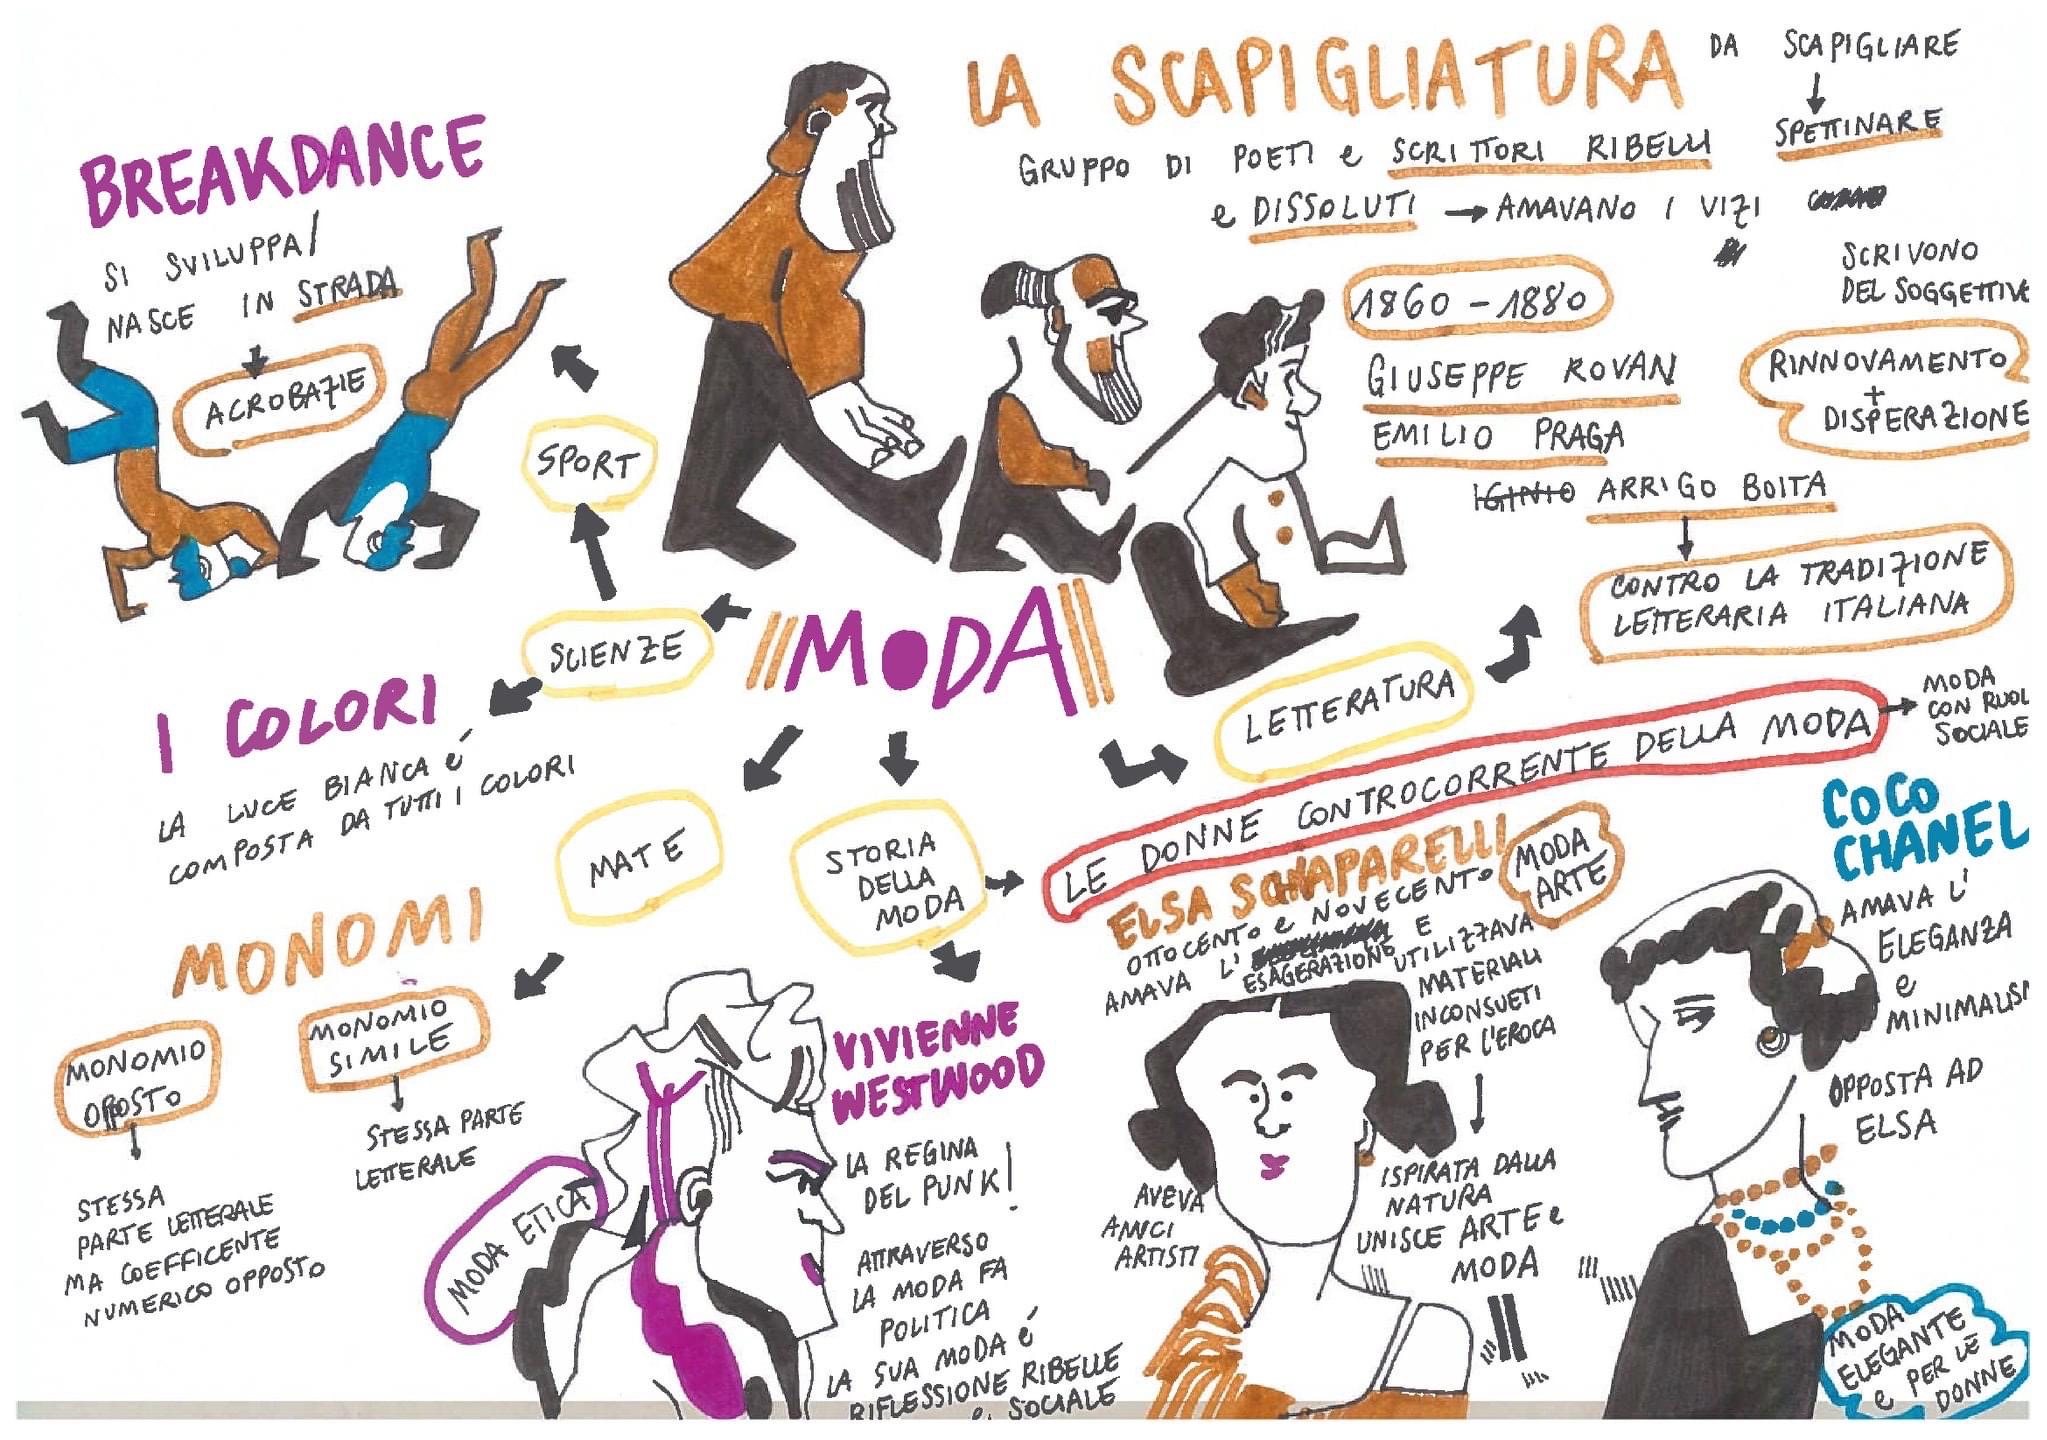 BREAKDANCE
SI SVILUPPA/
NASCE IN STRADA
ACROBAZIE
SPORT
SCIENZE
I COLORI
LA LUCE BIANCA é
COMPOSTA DA TUTTI I COLORI
MODA
LA SCAPIGLIATURA
DA SCAPIGLIARE
SPETTINARE
GRUPPO DI POETI e SCRITTORI RIBELLI
e DISSOLUTI → AMAVANO I VIZI
SCRIVONO
DEL SOGGETTIVE
1860 - 1880
GIUSEPPE ROVAN
EMILIO PRAGA
IGINIO ARRIGO BOITA
RINNOVAMENTO
+
DISPERAZIONE
CONTRO LA TRADIZIONE
LETTERARIA ITALIANA
LETTERATURA
MATE
MONOMI
MONOMIO
OPPOSTO
STESSA
PARTE LETTERALE
MA COEFFICENTE
NUMERICO OPPOSTO
MONOMIO
SIMILE
STESSA PARTE
LETTERALE
STORIA
DELLA
MODA
LE DONNE CONTROCORRENTE DELLA MODA
MODA
CON RUOL
SOCIALE
VIVIENNE
WESTWOOD
LA REGINA
DEL PUNK!
ATTRAVERSO
LA MODA FA
POLITICA
LA SUA MODA é
RIFLESSIONE RIBELLE
e SOCIALE
MODA ETICA
ELSA SCHIAPARELLI
MODA
ARTE
OTTOCENTO e NOVECENTO
AMAVA L' ESAGERAZIONE E
UTILIZZAVA
MATERIALI
INCONSUETI
PER L'EROCA
ISPIRATA DALLA
NATURA
UNISCE ARTE e
MODA
AVEVA
AMICI
ARTISTI
COCO
CHANEL
AMAVA L'
ELEGANZA
e
MINIMALISM
OPPOSTA AD
ELSA
MODA
ELEGANTE
e PER LE
DONNE